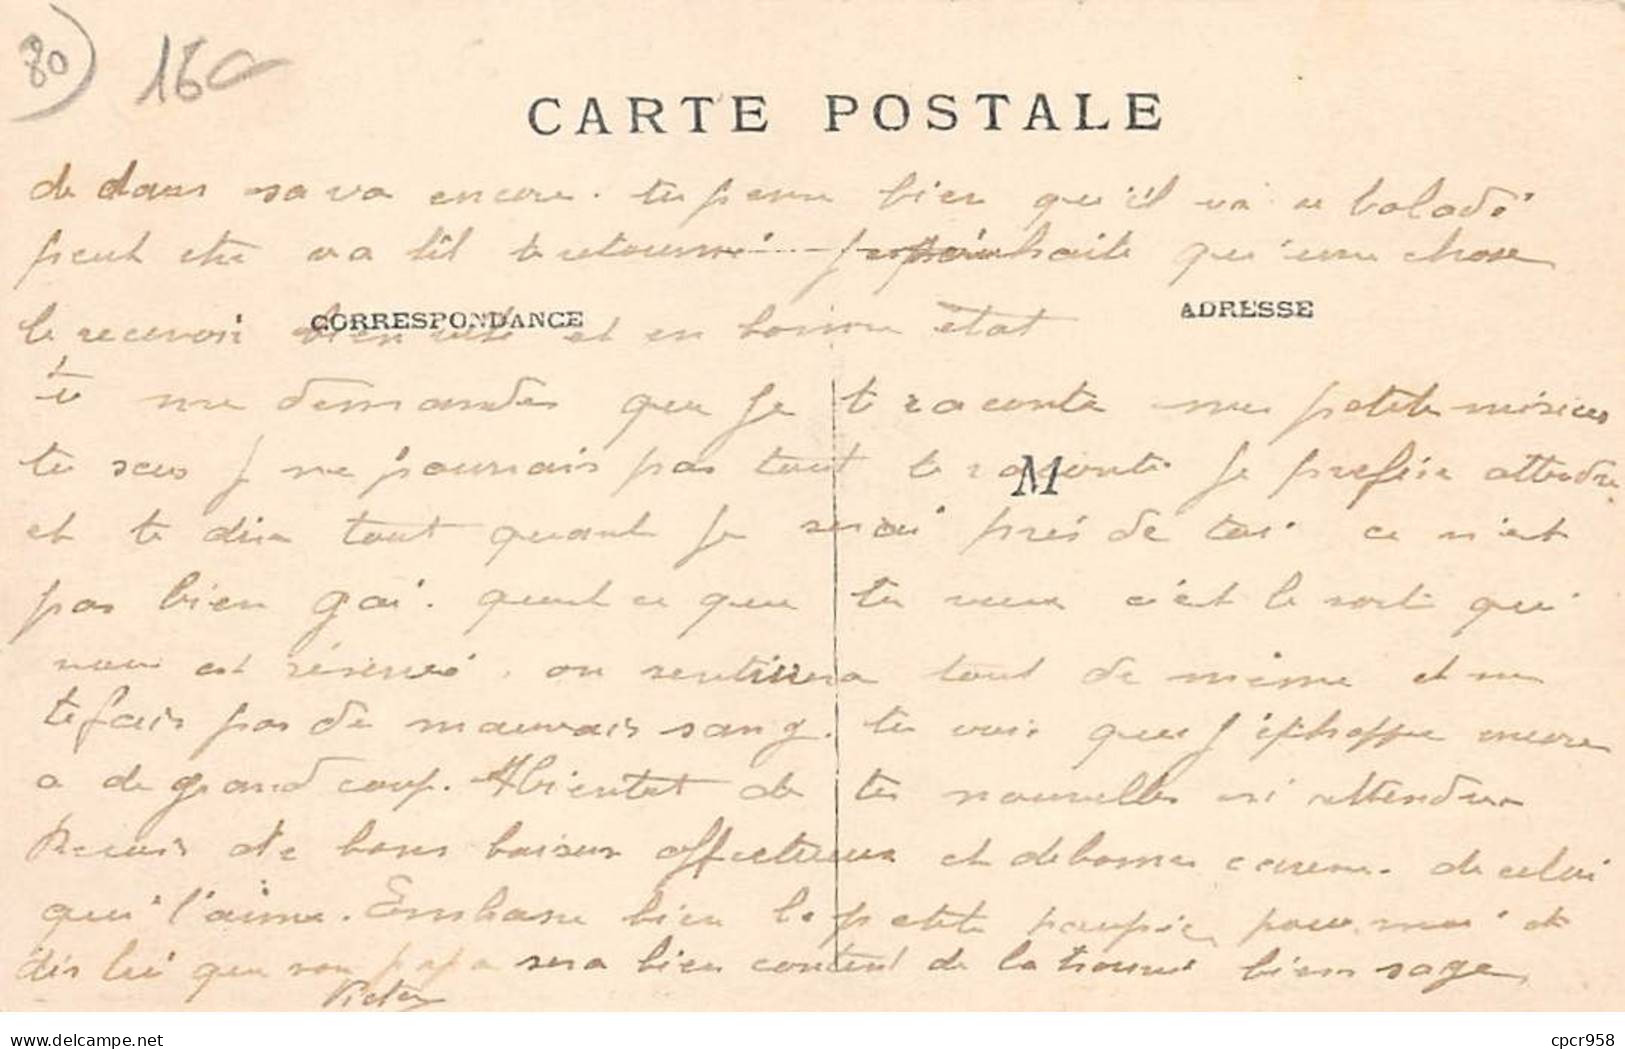 80) 16
CARTE POSTALE
de dans sa va encore. tu pense bien qu'il va se baladé
peut etre va til te retourné je souhaite qu'une chose
CORRESPONDANCE ADRESSE
le recevoir bien vite et en bonne etat
tu me demandes que je te raconte mes petite misères
M
tu sais je ne pourrais pas tout te raconté je prefère attendre
et te dire tout quant je serai près de toi ce n'est
pas bien gai. quant ce que tu veux c'est le sort qui
nous est réservé. on rentrera tout de même et ne
te fais pas de mauvais sang. tu vois que j'échappe encore
a de grand coup. Abientot de tes nouvelles si attendue
Recois de bons baisers affectueux et de bonnes caresse. de celui
qui t'aime. Embrasse bien le petite pour moi et
dis lui que son papa sera bien content de la trouvé bien sage
Victor
www.delcampe.net cpcr958